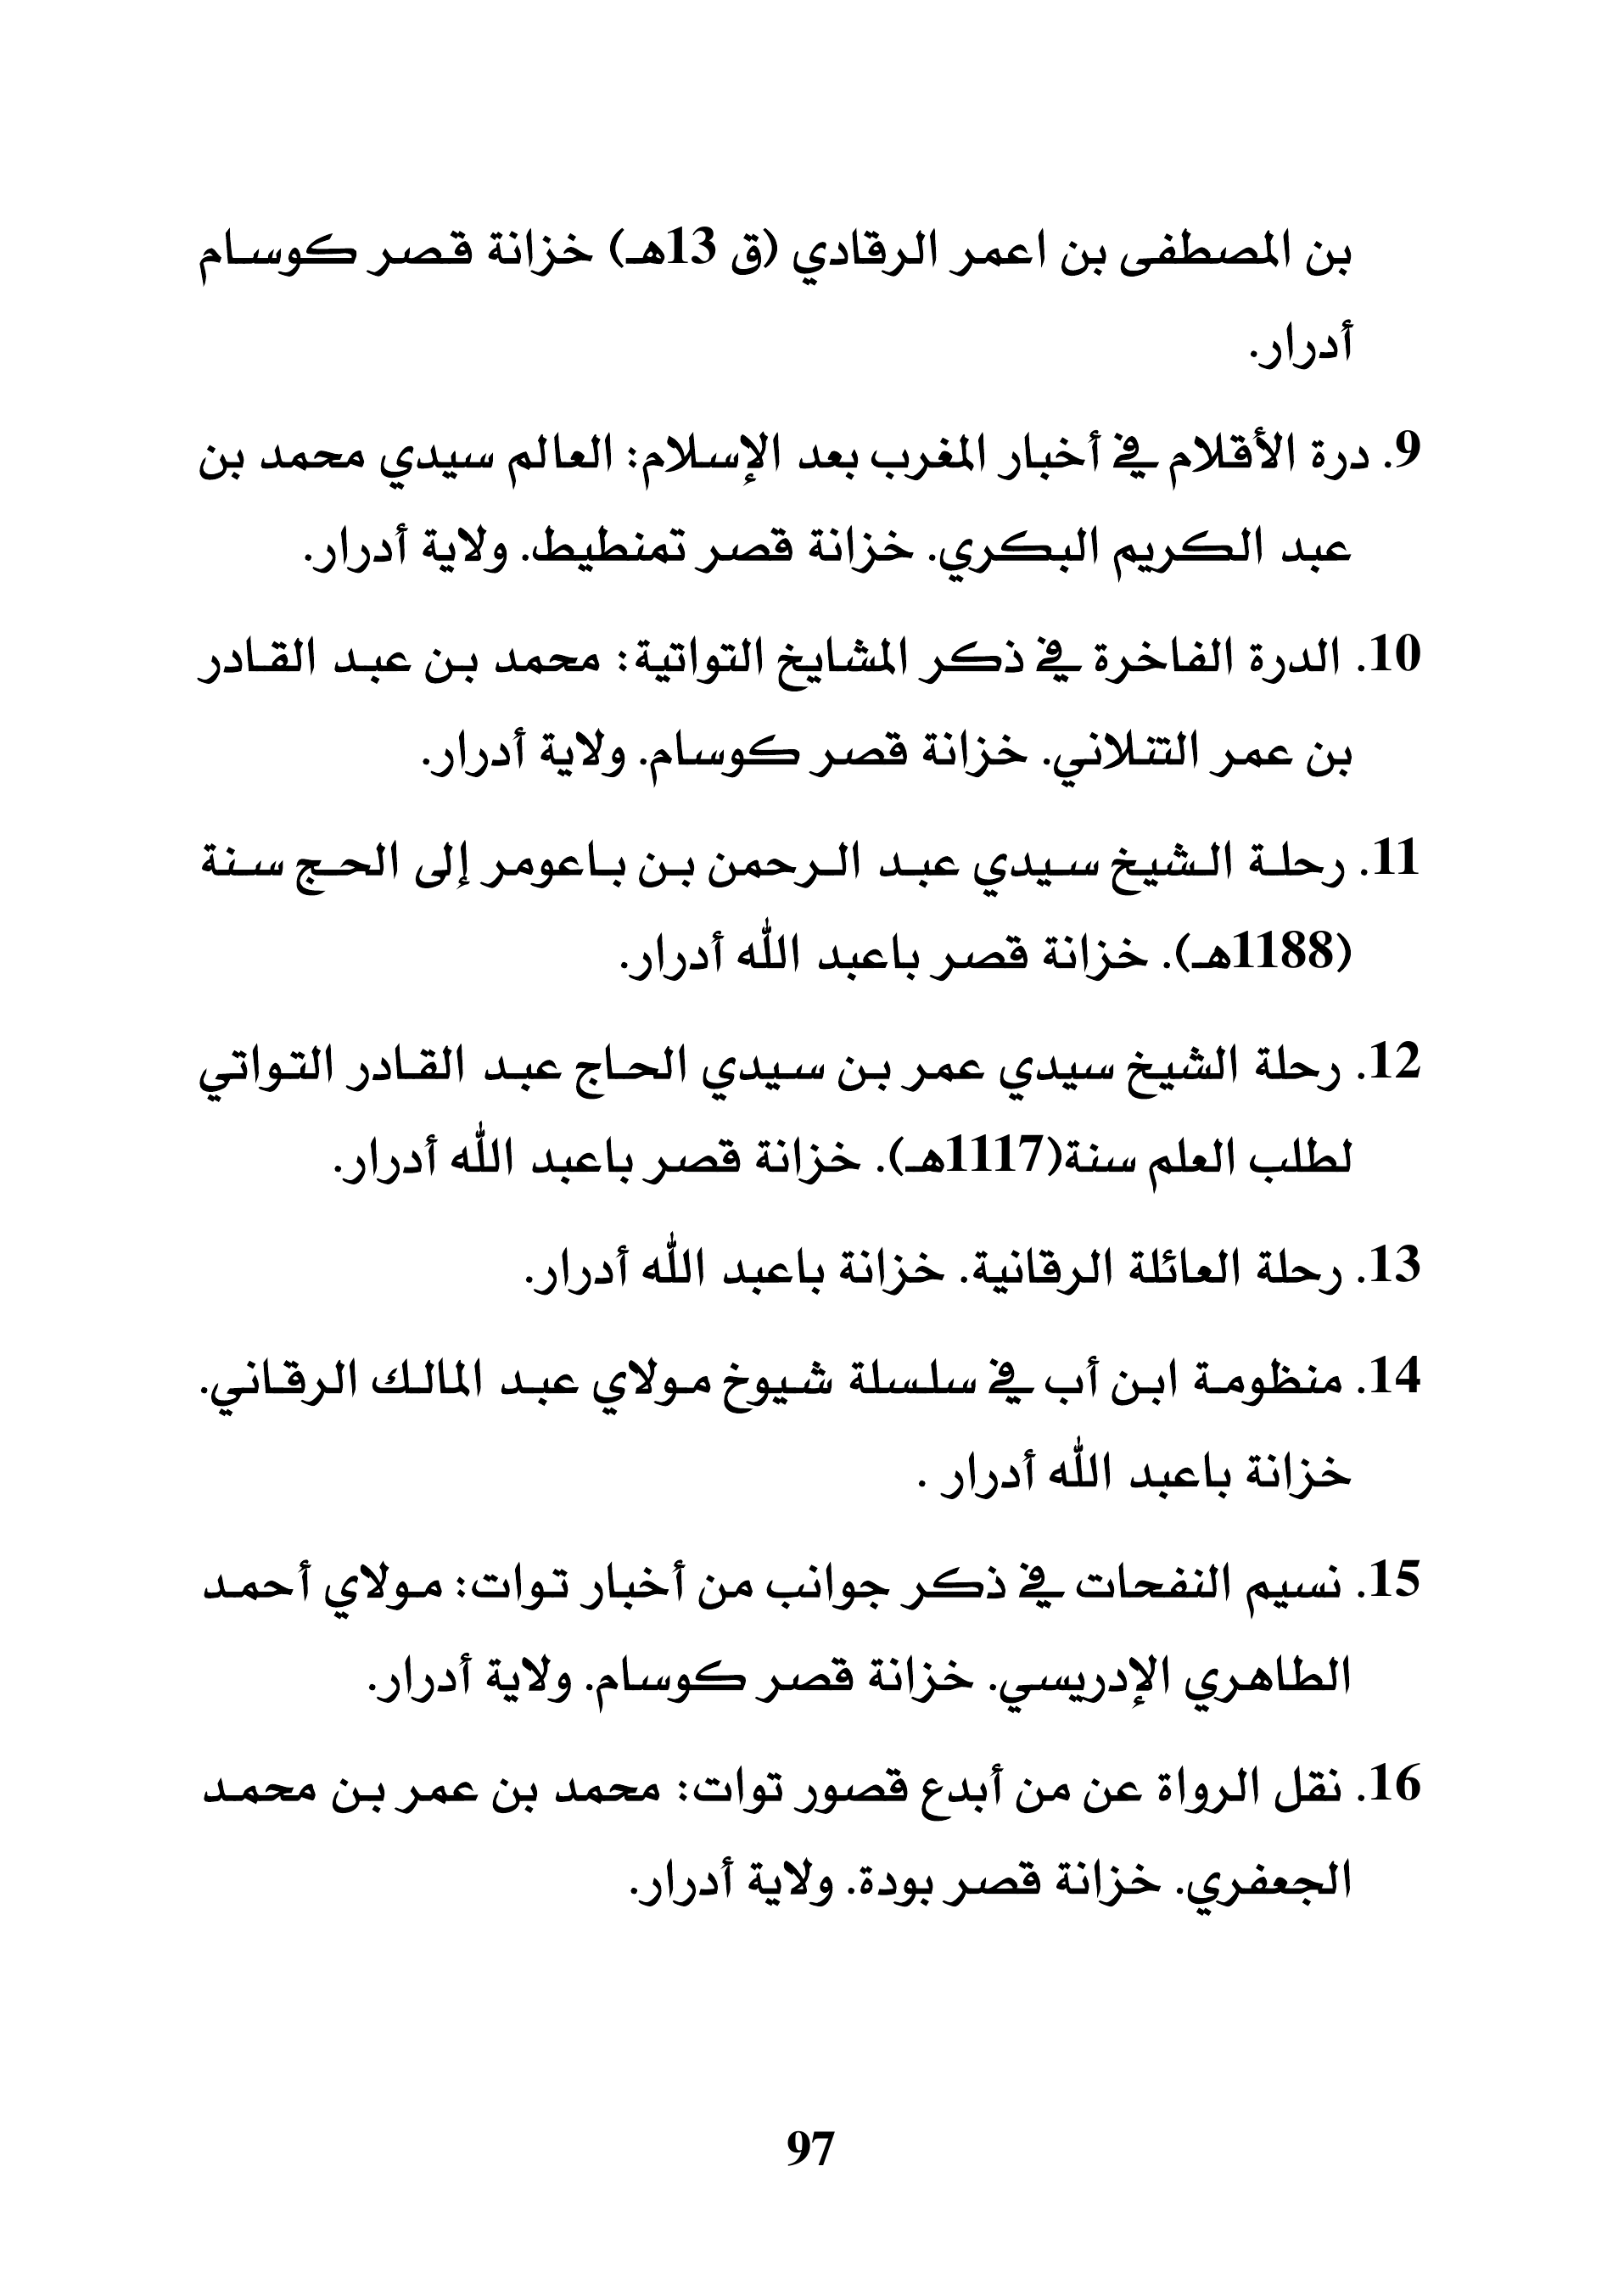 بن المصطفى بن اعمر الرقادي (ق 13هـ) خزانة قصر كوسام
أدرار.
9. درة الأقلام في أخبار المغرب بعد الإسلام: العالم سيدي محمد بن
عبد الكريم البكري. خزانة قصر تمنطيط. ولاية أدرار.
10. الدرة الفاخرة في ذكر المشايخ التواتية: محمد بن عبد القادر
بن عمر التنلاني. خزانة قصر كوسام. ولاية أدرار.
11. رحلة الشيخ سيدي عبد الرحمن بن باعومر إلى الحج سنة
(1188هـ). خزانة قصر باعبد الله أدرار.
12. رحلة الشيخ سيدي عمر بن سيدي الحاج عبد القادر التواتي
لطلب العلم سنة(1117هـ). خزانة قصر باعبد الله أدرار.
13. رحلة العائلة الرقانية. خزانة باعبد الله أدرار.
14. منظومة ابن أب في سلسلة شيوخ مولاي عبد المالك الرقاني.
خزانة باعبد الله أدرار .
15. نسيم النفحات في ذكر جوانب من أخبار توات: مولاي أحمد
الطاهري الإدريسي. خزانة قصر كوسام. ولاية أدرار.
16. نقل الرواة عن من أبدع قصور توات: محمد بن عمر بن محمد
الجعفري. خزانة قصر بودة. ولاية أدرار.
97